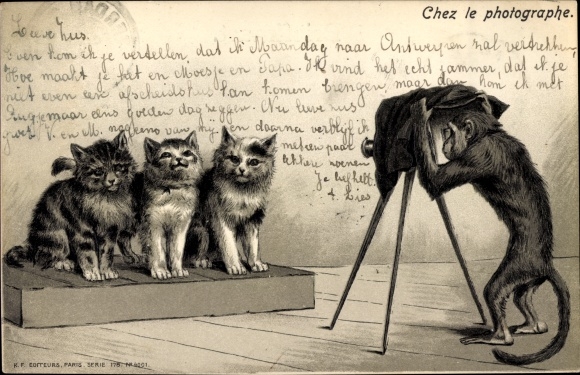 Chez le photographe.
Lieve Zus.
Even kom ik je vertellen, dat ik Maandag naar Antwerpen zal vertrekken,
Hoe maakt je het en Moesje en Papa. Ik vind het echt jammer, dat ik je
niet even een afscheidskus kan komen brengen, maar dan kom ik met
maar eens goeden dag zeggen. Nu lieve zus
groet V. en M. nog eens van mij en daarna verblijf ik
met een paar
lekkere zoenen
Je liefheb.
Lies
K.F. EDITEURS, PARIS SERIE 176,